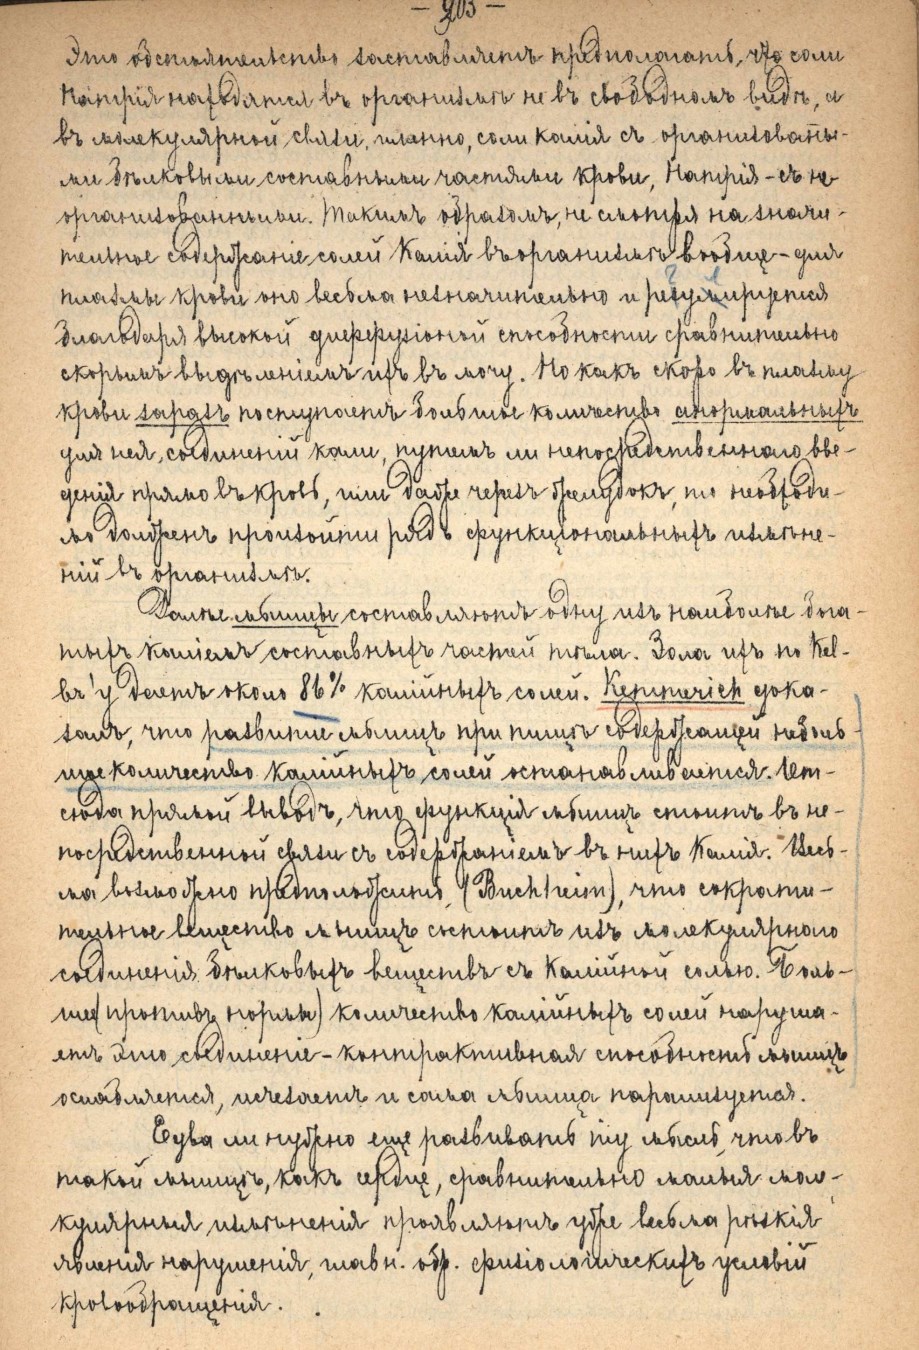 — 203 —
Это обстоятельство заставляетъ предполагать, что соли
Натрія находятся въ организмѣ не въ свободномъ видѣ, а
въ молекулярной связи, именно, соли калія съ организованны-
ми бѣлковыми составными частями крови, Натрія – съ не
организованными. Такимъ образомъ, не смотря на значи-
тельное содержаніе солей Калія въ организмѣ вообще – для
плазмы крови оно весьма незначительно и регулируется
благодаря высокой диффузіоной способности сравнительно
скорымъ выдѣленіемъ ихъ въ мочу. Но какъ скоро въ плазму
крови заразъ поступаетъ большое количество анормальныхъ
для нея, соединеній кали, путемъ ли непосредственнаго вве-
денія прямо въ кровь, или даже черезъ желудокъ, то необходи-
мо долженъ произойти рядъ функціональныхъ измѣне-
ній въ организмѣ.
Далѣе мышцы составляютъ одну изъ наиболѣе бога-
тыхъ каліемъ составныхъ частей тѣла. Зола ихъ по Kel-
въ'у даетъ около 86% калійныхъ солей. Kemmerich дока-
залъ, что развитіе мышцъ при пищѣ содержащей неболь-
шое количество калійныхъ солей останавливается. От-
сюда прямой выводъ, что функція мышцъ стоитъ въ не-
посредственной связи съ содержаніемъ въ нихъ Калія. Весь-
ма возможно предположить, (Buchheim), что сократи-
тельное вещество мышцъ состоитъ изъ молекулярнаго
соединенія бѣлковыхъ веществъ съ Калійной солью. Боль-
шее (противъ нормы) количество калійныхъ солей наруша-
етъ это соединеніе – контрактивная способность мышцъ
ослабляется, исчезаетъ и сама мышца парализуется.
Едва ли нужно еще развивать ту мысль, что въ
такой мышцѣ, какъ сердце, сравнительно малыя моле-
кулярныя измѣненія проявляютъ уже весьма рѣзкія
явленія нарушенія, главн. обр. физіологическихъ условій
кровообращенія.